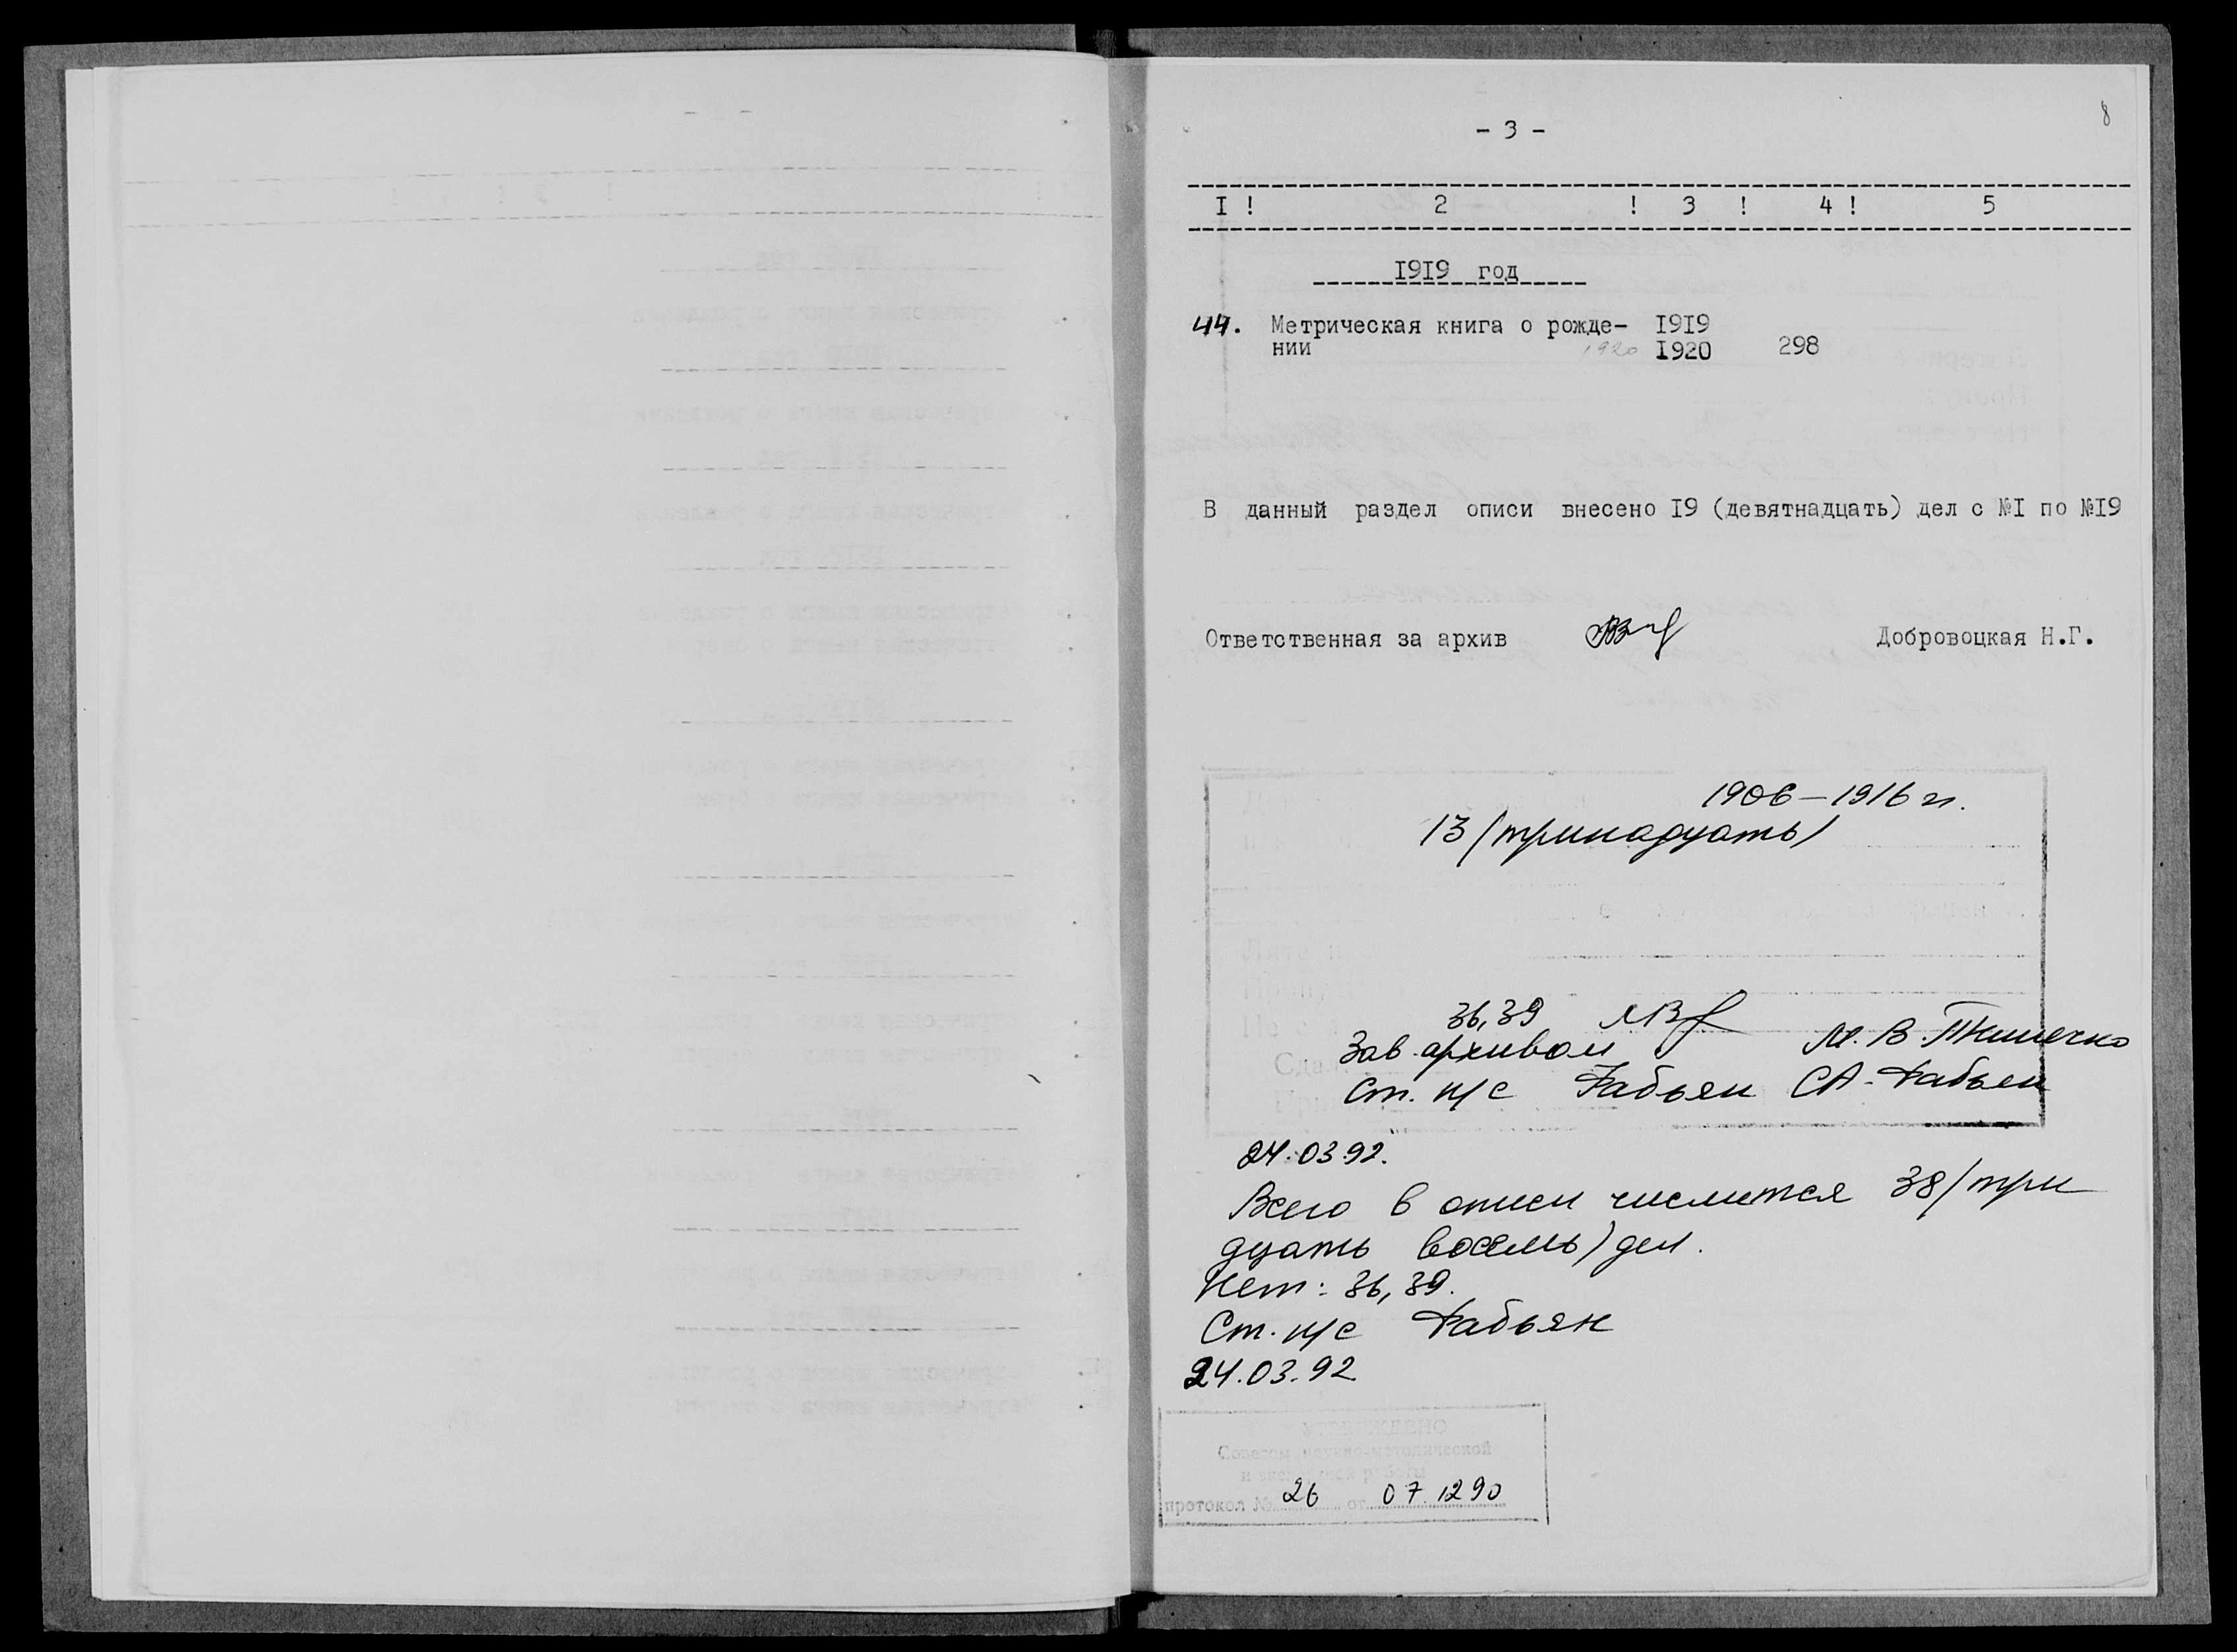 8
- 3 -
I ! 2 ! 3 ! 4 ! 5
I9I9 год
44. Метрическая книга о рожде- I9I9
нии 1920 I920 298
В данный раздел описи внесено I9 (девятнадцать) дел с №I по №I9
Ответственная за архив Добровоцкая Н.Г.
1906-1916 гг.
13 (тринадцать)
36, 39
Зав. архивом М. В.
Ст. н/с Фабьян С.А. Фабьян
24.03.92.
Всего в описи числится 38 (три
дцать восемь) дел.
Нет: 36, 39.
Ст. н/с Фабьян
24.03.92
УТВЕРЖДЕНО
Советом научно-методической
и экспертной работы
протокол № 26 от 07.12 90